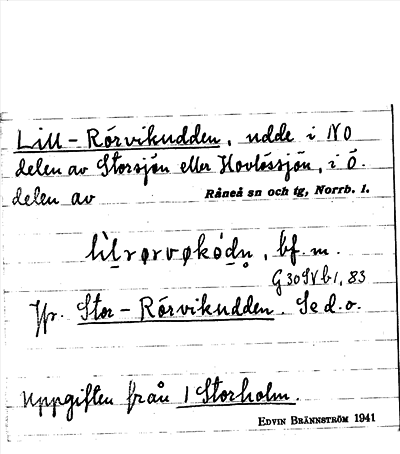 Lill-Rörvikudden, udde i NO
delen av Storsjön eller Hovlössjön, i Ö.
delen av Råneå sn och tg, Norrb. l.
bf. m.
G 30 SV b 1, 83
Jfr. Stor-Rörvikudden. Se d. o.
Uppgiften från 1 Storholm.
EDVIN BRÄNNSTRÖM 1941